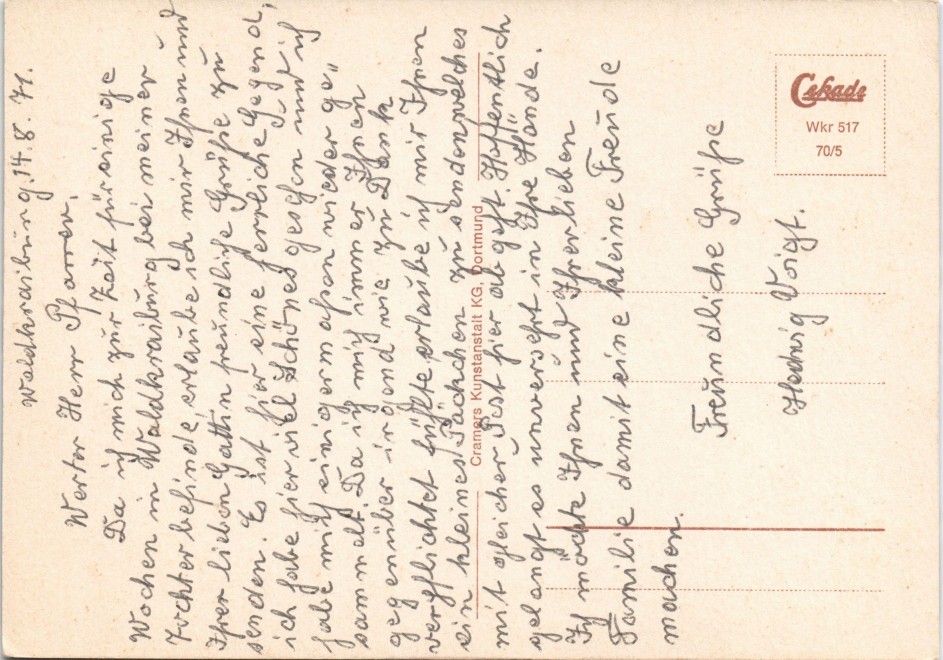 Waldkraiburg, 14. 8. 71.
Werter Herr Pfarrer,
Da ich mich zur Zeit für einige
Wochen in Waldkraiburg bei meiner
Tochter befinde erlaube ich mir Ihnen und
Ihrer lieben Gattin freundliche Grüße zu
senden. Es ist hier eine herrliche Gegend,
ich habe hier viel Schönes gesehen und ich
habe mich einigermaßen wieder ge„
sammelt. Da ich mich immer Ihnen
gegenüber irgend wie zu Dank
verpflichtet fühlte erlaube ich mir Ihnen
ein kleines Päckchen zu senden welches
mit gleicher Post hier abgeht. Hoffentlich
gelangt es unversehrt in Ihre Hände.
Ich möchte Ihnen und Ihrer lieben
Familie damit eine kleine Freude
machen.
Freundliche Grüße
Hedwig Voigt.
Cramers Kunstanstalt KG, Dortmund
Cekade
Wkr 517
70/5